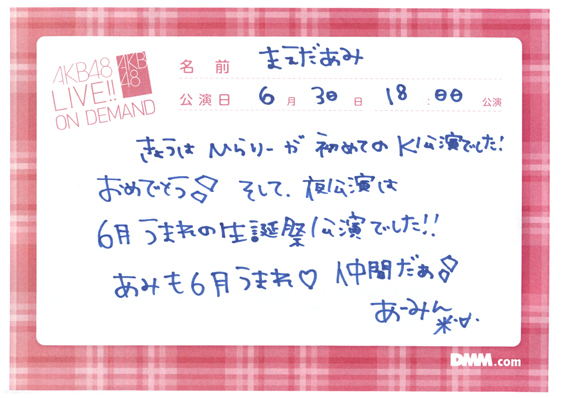 AKB48
LIVE!!
ON DEMAND
AKB
48
名前 まえだあみ
公演日 6月30日 18:00公演
きょうは ひらりーが 初めてのK公演でした!
おめでとう! そして、夜公演は
6月うまれの生誕祭公演でした!!
あみも6月うまれ♡ 仲間だぁ!
あーみん
DMM.com